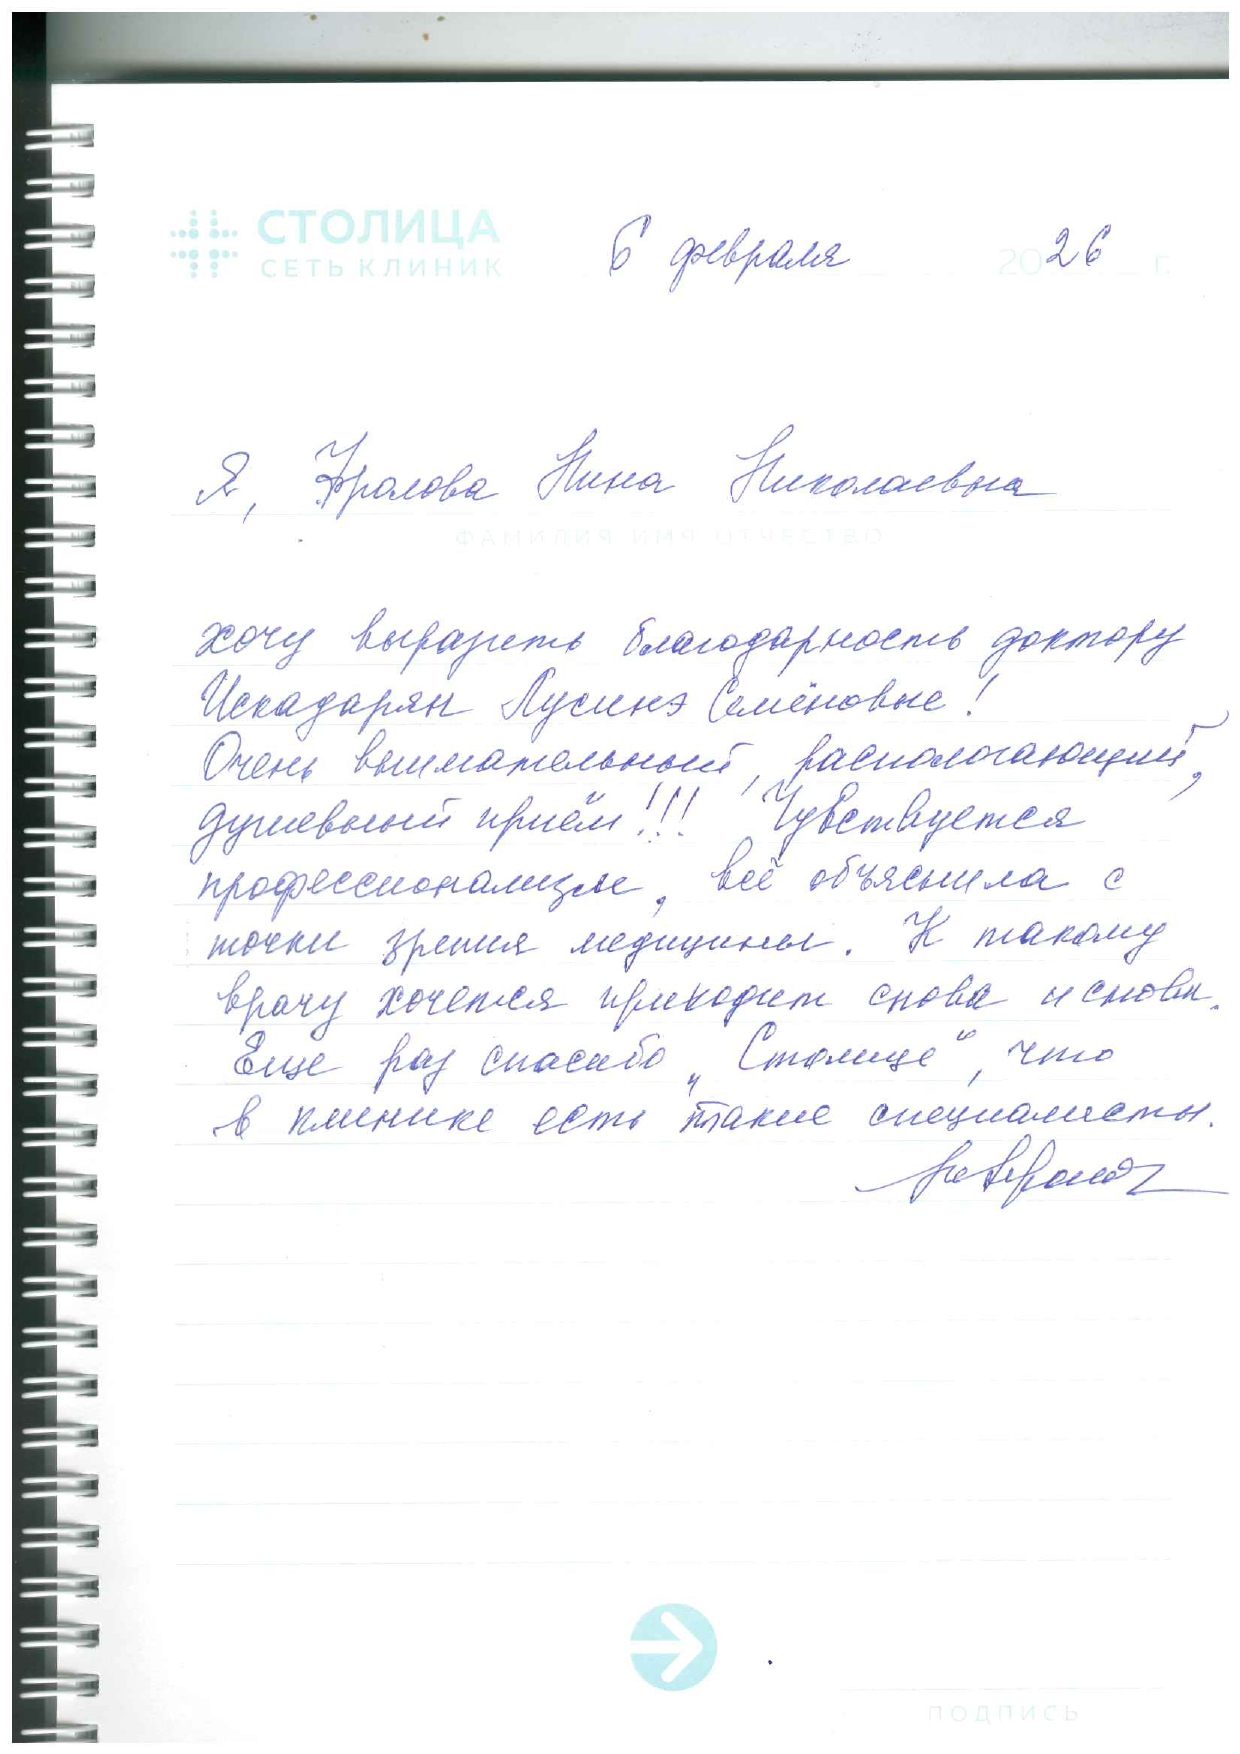 СТОЛИЦА
СЕТЬ КЛИНИК
6 февраля 2026 г.
Я, Фролова Нина Николаевна
ФАМИЛИЯ ИМЯ ОТЧЕСТВО
хочу выразить благодарность доктору
Искадарян Лусинэ Семёновые!
Очень внимательный, распологающий,
душевный приём!!! Чувствуется
профессионализм, всё объяснила с
точки зрения медицины. К такому
врачу хочется приходит снова и снова.
Еще раз спасибо „Столице“, что
в клинике есть такие специалисты.
ПОДПИСЬ